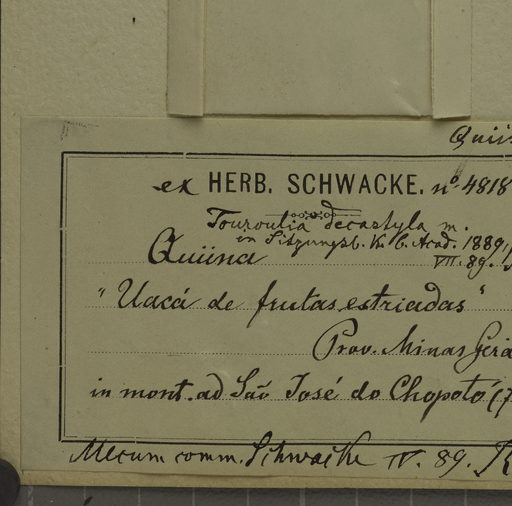 Quii
ex HERB. SCHWACKE. nº 4818
Touroulia decastyla m.
in Sitzungsb. K. b. Acad. 1889,
Quiina VII. 89.
"Uacá de frutas estriadas"
Prov. Minas Gera
in mont. ad São José do Chopotó (7
Mecum comm. Schwacke IV. 89. R